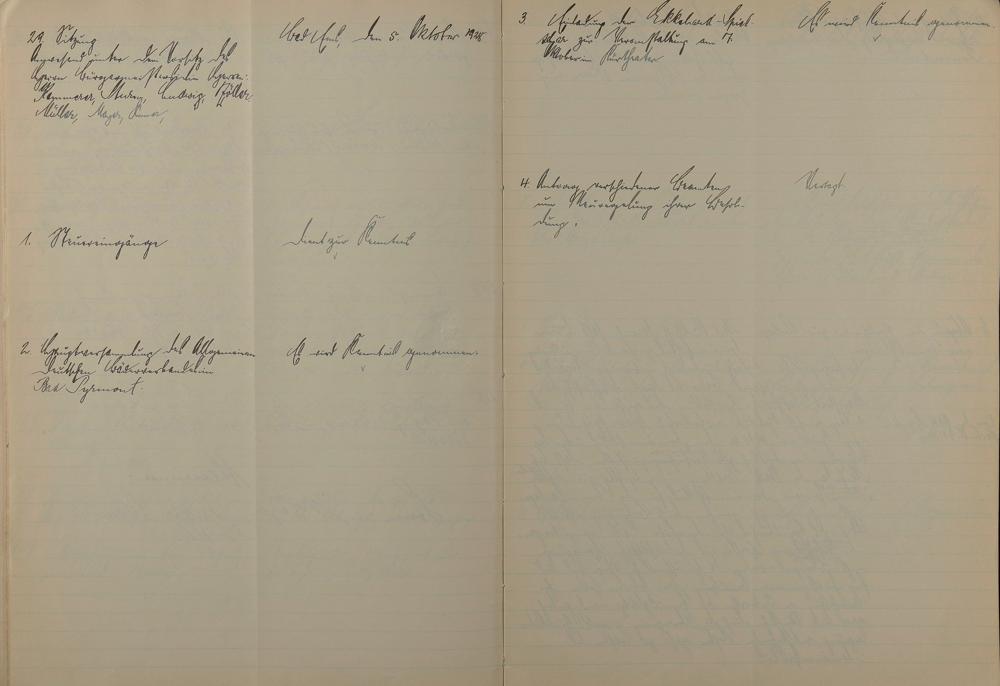 29. Sitzung
Anwesend unter dem Vorsitz des
Herrn Bürgermeisters die Herren:
Kammerer, Ludwig, Höller
Müller, Mayer,
Bad Ems, den 5. Oktober 1928
1. Steuereingänge
dient zur Kenntnis
2. Hauptversammlung des Allgemeinen
Deutschen Bäderverbandes in
Bad Pyrmont.
Es wird Kenntnis genommen.
3. Einladung der Ekkehard-Spiel-
schar zur Veranstaltung am 7.
Oktober im Kurtheater
Es wird Kenntnis genommen
4. Antrag verschiedener Beamten
um Neuregelung ihrer Besol-
dung.
Vertagt.